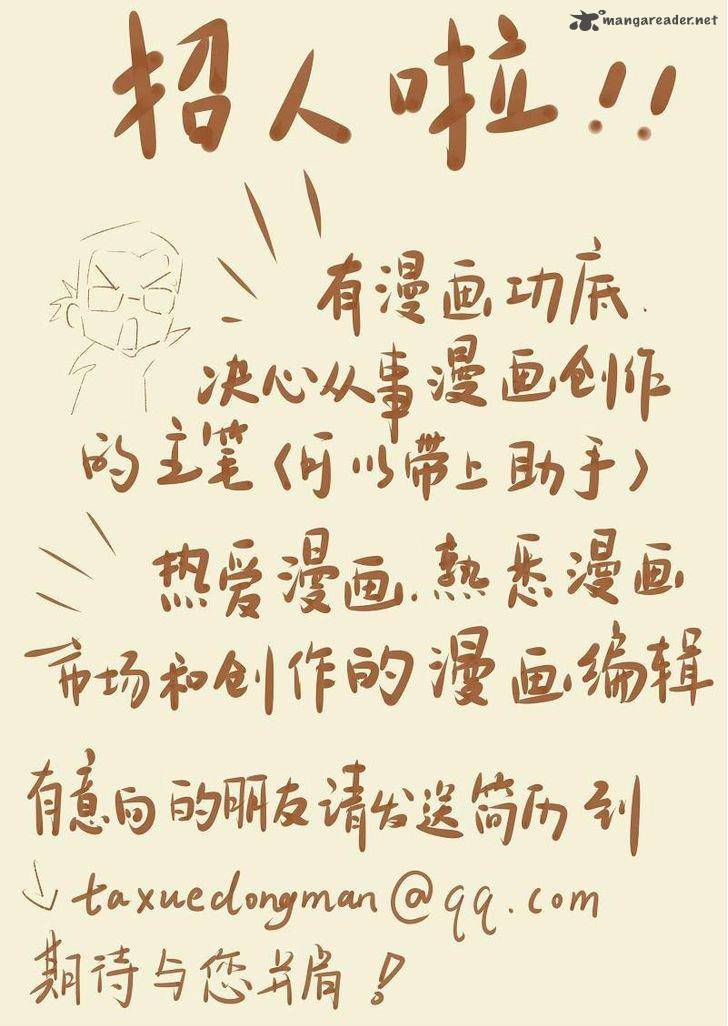 mangareader.net
招人啦！！
有漫画功底、
决心从事漫画创作
的主笔（可以带上助手）
热爱漫画、熟悉漫画
市场和创作的漫画编辑
有意向的朋友请发送简历到
↓taxuedongman@qq.com
期待与您并肩！